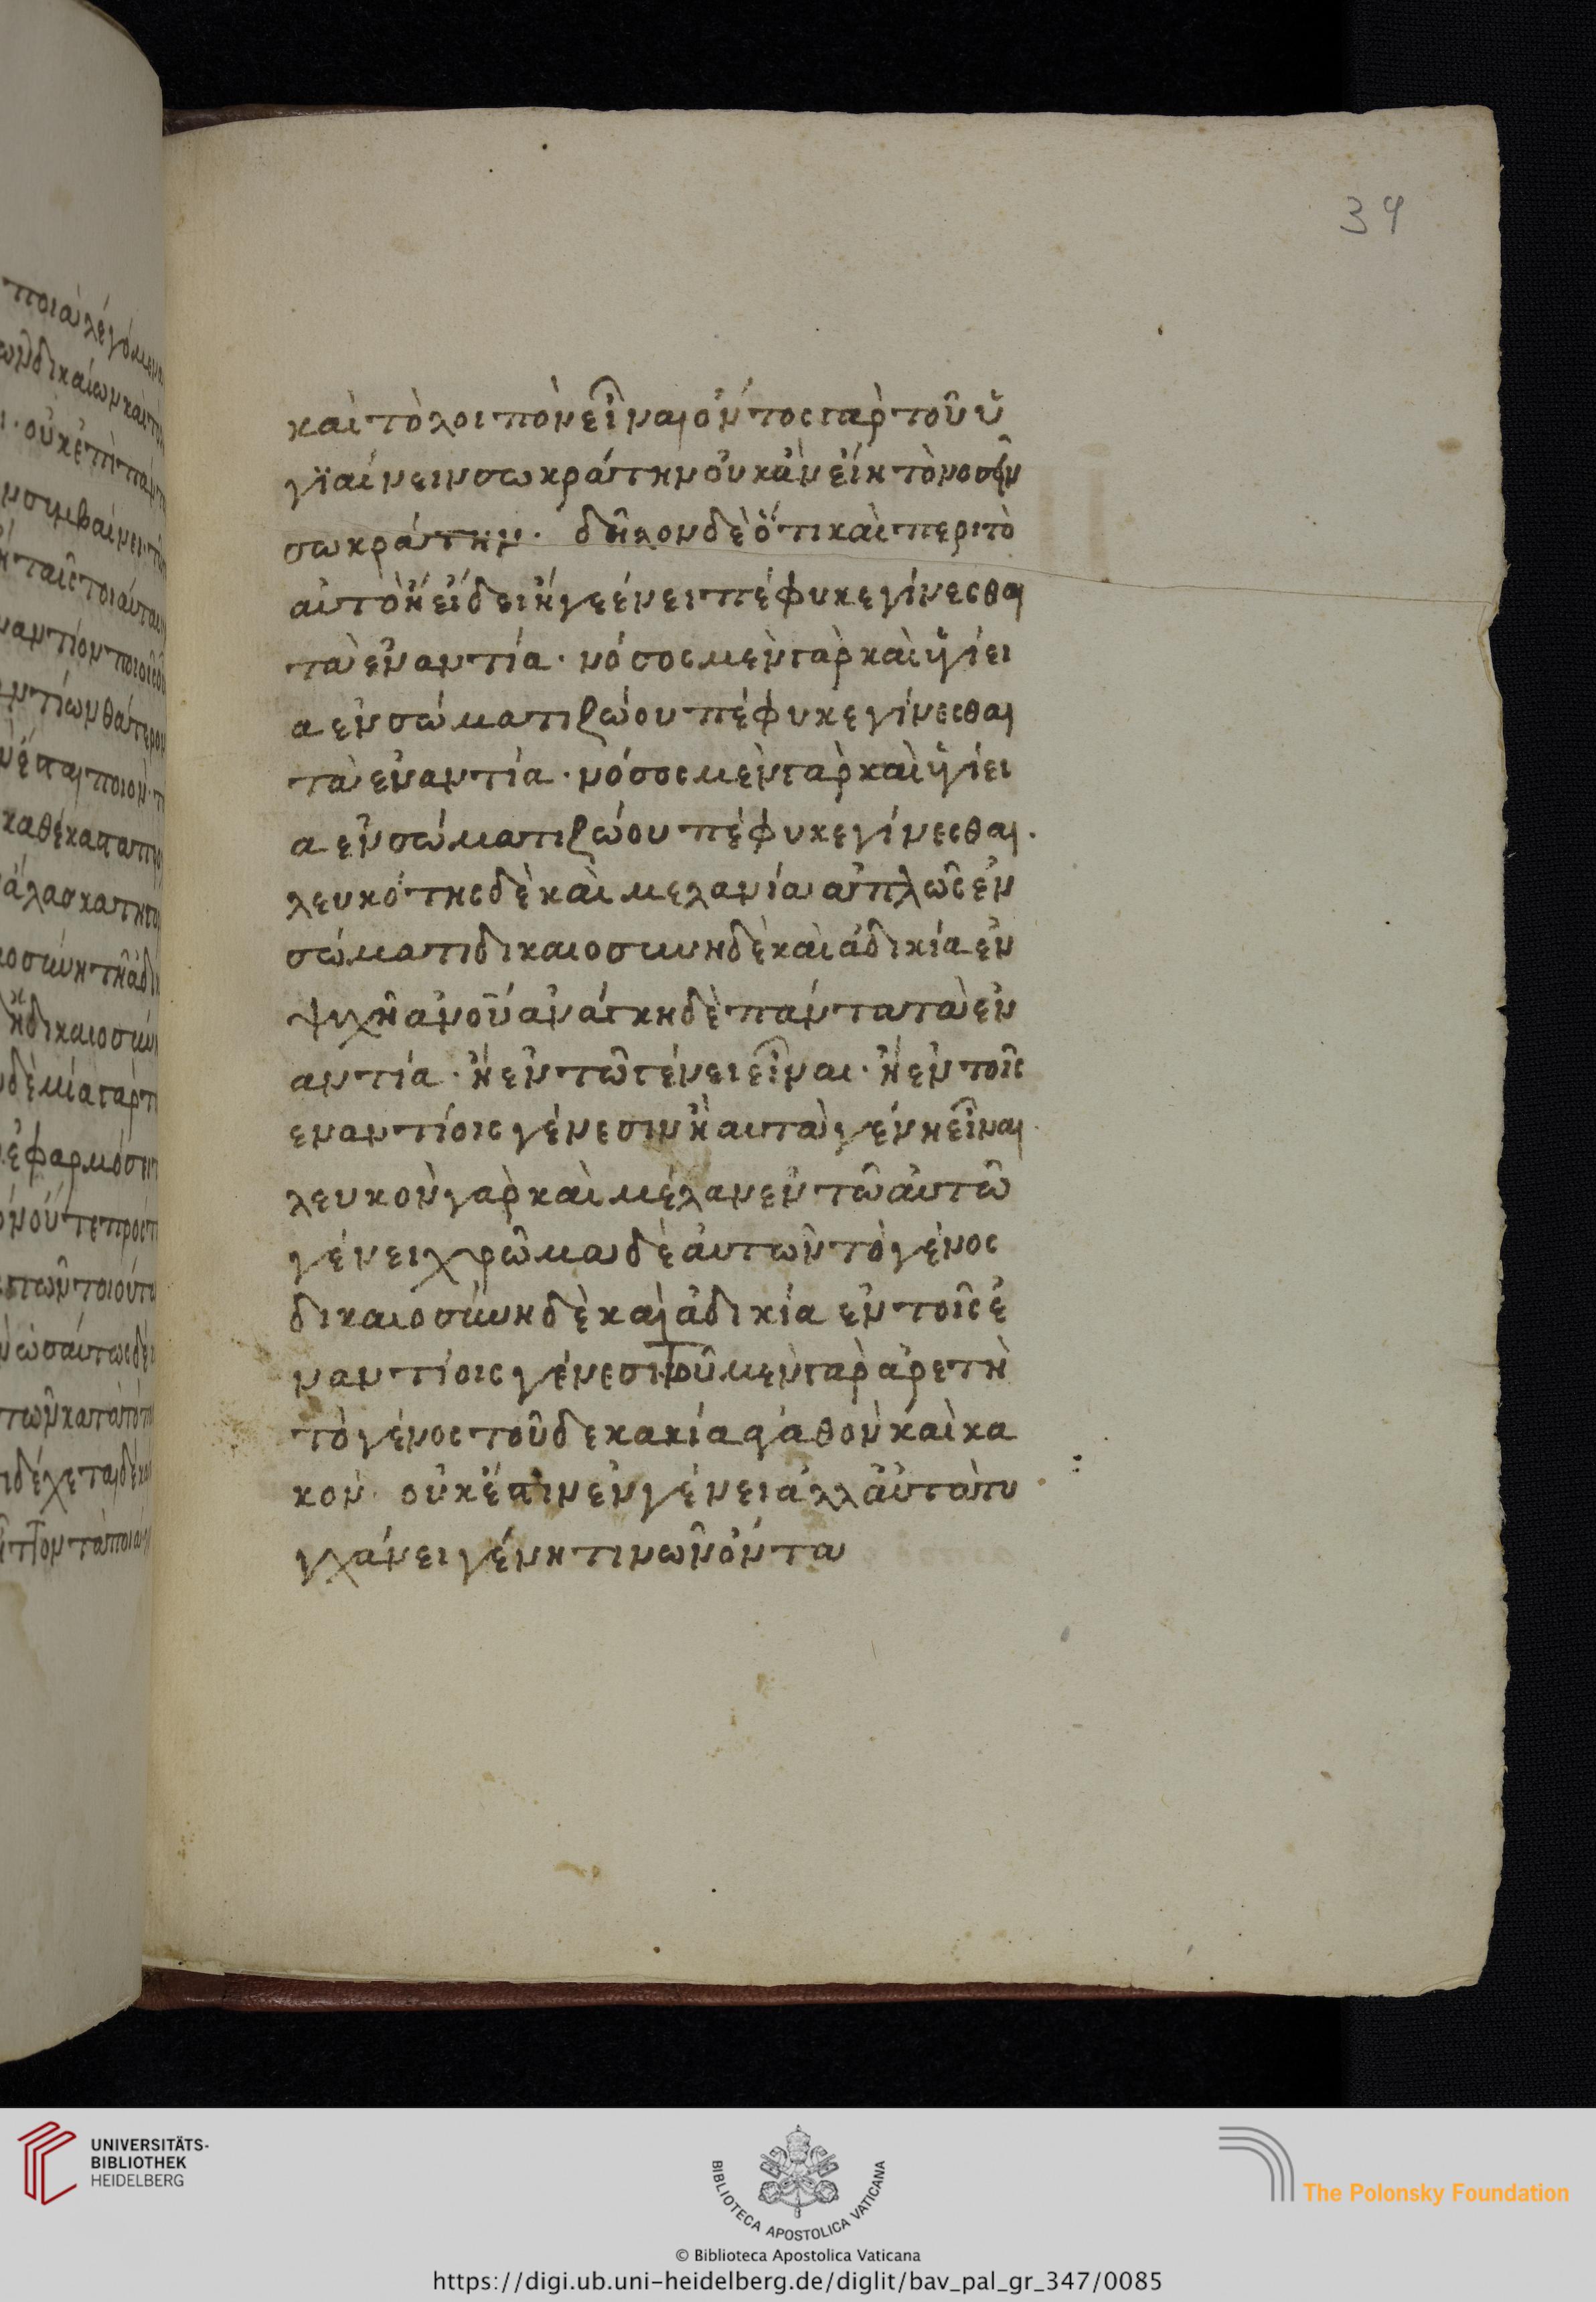 39
καὶ τὸ λοιπὸν εἶναι ὄντος γὰρ τοῦ ὑ
γϊαίνειν σωκράτην οὐκ ἂν εἴη τὸ νοσεῖν
σωκράτην · δῆλον δὲ ὅτι καὶ περὶ τὸ
αὐτὸ ἢ εἴδει ἢ γεένει πέφυκε γίνεσθαι
τὰ ἐναντία · νόσος μὲν γὰρ καὶ ὑγίει
α ἐν σώματι ζώου πέφυκε γίνεσθαι
τὰ ἐναντία · νόσος μὲν γὰρ καὶ ὑγίει
α ἐν σώματι ζώου πέφυκε γίνεσθαι ·
λευκότης δὲ καὶ μελανία ἁπλῶς ἐν
σώματι δικαιοσυνη δὲ καὶ ἀδικία ἐν
ψυχῆ ἀνοῦ ἀνάγκη δὲ πάντα τὰ ἐν
αντία · ἢ ἐν τῶ γένει εἶναι · ἢ ἐν τοῖς
εναντίοις γένεσιν ἢ αυτὰ γένη εἶναι ·
λευκὸν γὰρ καὶ μέλαν ἐν τῶ ἀυτῶ
γένει χρῶμα δὲ ἀυτῶν τὸ γένος
δικαιοσύνη δὲ καὶ ἀδικία ἐν τοῖς ἐ
ναντίοις γένεσι · τοῦ μὲν γὰρ ἀρετὴ
τὸ γένος τοῦ δε κακία ἀγαθὸν καὶ κα
κὸν · οὐκ ἔστιν ἐν γένει ἀλλ ἀὐτὰ τυ
γχάνει γένη τινῶν ὄντα
UNIVERSITÄTS-
BIBLIOTHEK
HEIDELBERG
BIBLIOTECA APOSTOLICA VATICANA
The Polonsky Foundation
© Biblioteca Apostolica Vaticana
https://digi.ub.uni-heidelberg.de/diglit/bav_pal_gr_347/0085